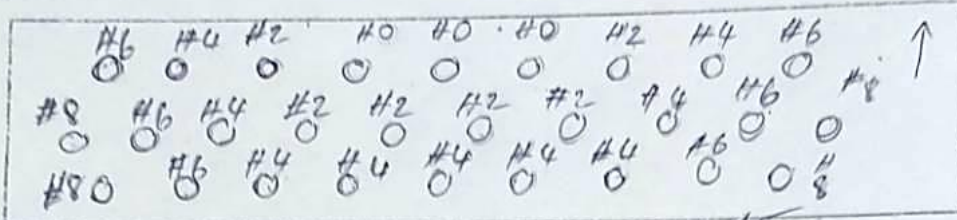 #6 #4 #2 #0 #0 #0 #2 #4 #6
#8 #6 #4 #2 #2 #2 #2 #4 #6 #8
#8 #6 #4 #4 #4 #4 #4 #6 #8